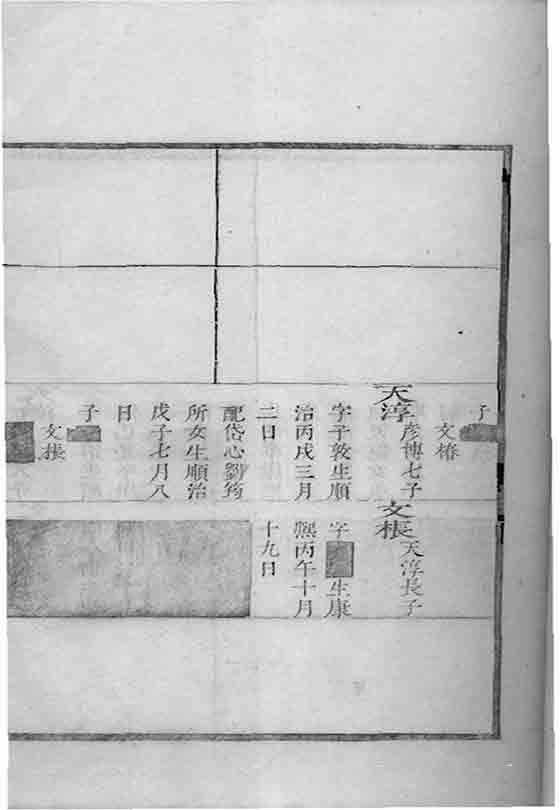 子
文椿
天淳
彦博七子
字子敦生順
治丙戌三月
二日
配岱心劉筠
所女生順治
戊子七月八
日
子
文棖
文棖
天淳長子
字 生康
熙丙午十月
十九日